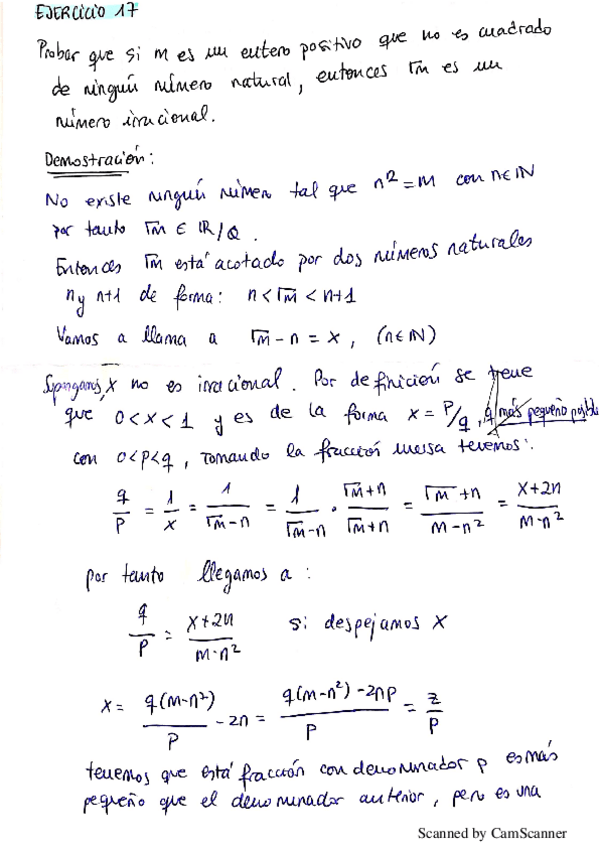 EJERCICIO 17
Probar que si m es un entero positivo que no es cuadrado
de ningún número natural, entonces √m es un
número irracional.
Demostración:
No existe ningún número tal que n² = m con n∈ℕ
por tanto √m ∈ ℝ/Q.
Entonces √m está acotado por dos números naturales
n y n+1 de forma: n < √m < n+1
Vamos a llama a √m - n = x, (n∈ℕ)
Supongamos x no es irracional. Por definición se tiene
que 0 < x < 1 y es de la forma x = P/q, q más pequeño posible
con 0 < p < q, tomando la fracción inversa tenemos:
q/P = 1/x = 1/(√m - n) = 1/(√m - n) · (√m + n)/(√m + n) = (√m + n)/(m - n²) = (x + 2n)/(m - n²)
por tanto llegamos a:
q/P = (x + 2n)/(m - n²) si despejamos x
x = q(m - n²)/P - 2n = (q(m - n²) - 2np)/P = z/P
tenemos que está fracción con denominador p es más
pequeño que el denominador anterior, pero es una
Scanned by CamScanner